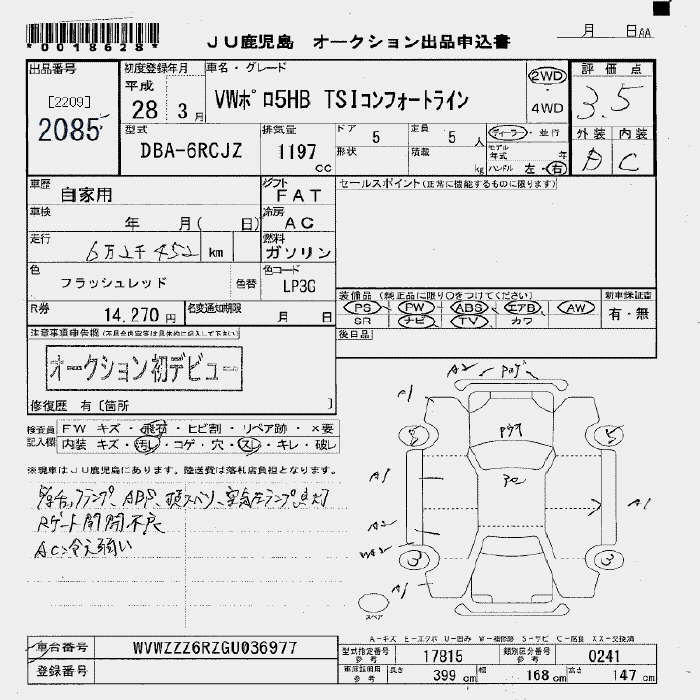 *0018628*
JU鹿児島 オークション出品申込書
月 日AA
出品番号
[2209]
2085
初度登録年月
平成
28 3月
車名・グレード
VWポロ5HB TSIコンフォートライン
2WD
・
4WD
評価点
3.5
外装 内装
A C
型式
DBA-6RCJZ
排気量
1197
cc
ドア 5
定員 5 人
形状
積載 kg
ディーラー・並行
モデル年式 年
ハンドル 左・右
車歴
自家用
シフト
FAT
セールスポイント(正常に機能するものに限ります)
車検
年 月( 日)
冷房
AC
走行
6万2千452 km
燃料
ガソリン
色
フラッシュレッド
色替
色コード
LP3G
R券
14,270円
名変通知期限
月 日
装備品(純正品に限り○をつけてください)
PS PW ABS エアB AW
SR ナビ TV カワ
新車保証書
有・無
後日品
注意事項申告欄(不具合内容等は具体的に記入して下さい)
オークション初デビュー
修復歴 有〔箇所 〕
検査員記入欄
FW キズ・飛石・ヒビ割・リペア跡・×要
内装 キズ・汚レ・コゲ・穴・スレ・キレ・破レ
※現車はJU鹿児島にあります。陸送費は落札店負担となります。
ABS、横スベリ、空気圧ランプ点灯
Rゲート開閉不良
AC冷え弱い
A2
A1
5
5
A1
A1
A2
3
3
A1
スペア
A-キズ E-エクボ U-凹み W-補修跡 S-サビ C-腐食 XX-交換済
車台番号
WVWZZZ6RZGU036977
登録番号
型式指定番号
参考
17815
類別区分番号
参考
0241
車庫証明用
参考
長さ 399 cm
幅 168 cm
高さ 147 cm